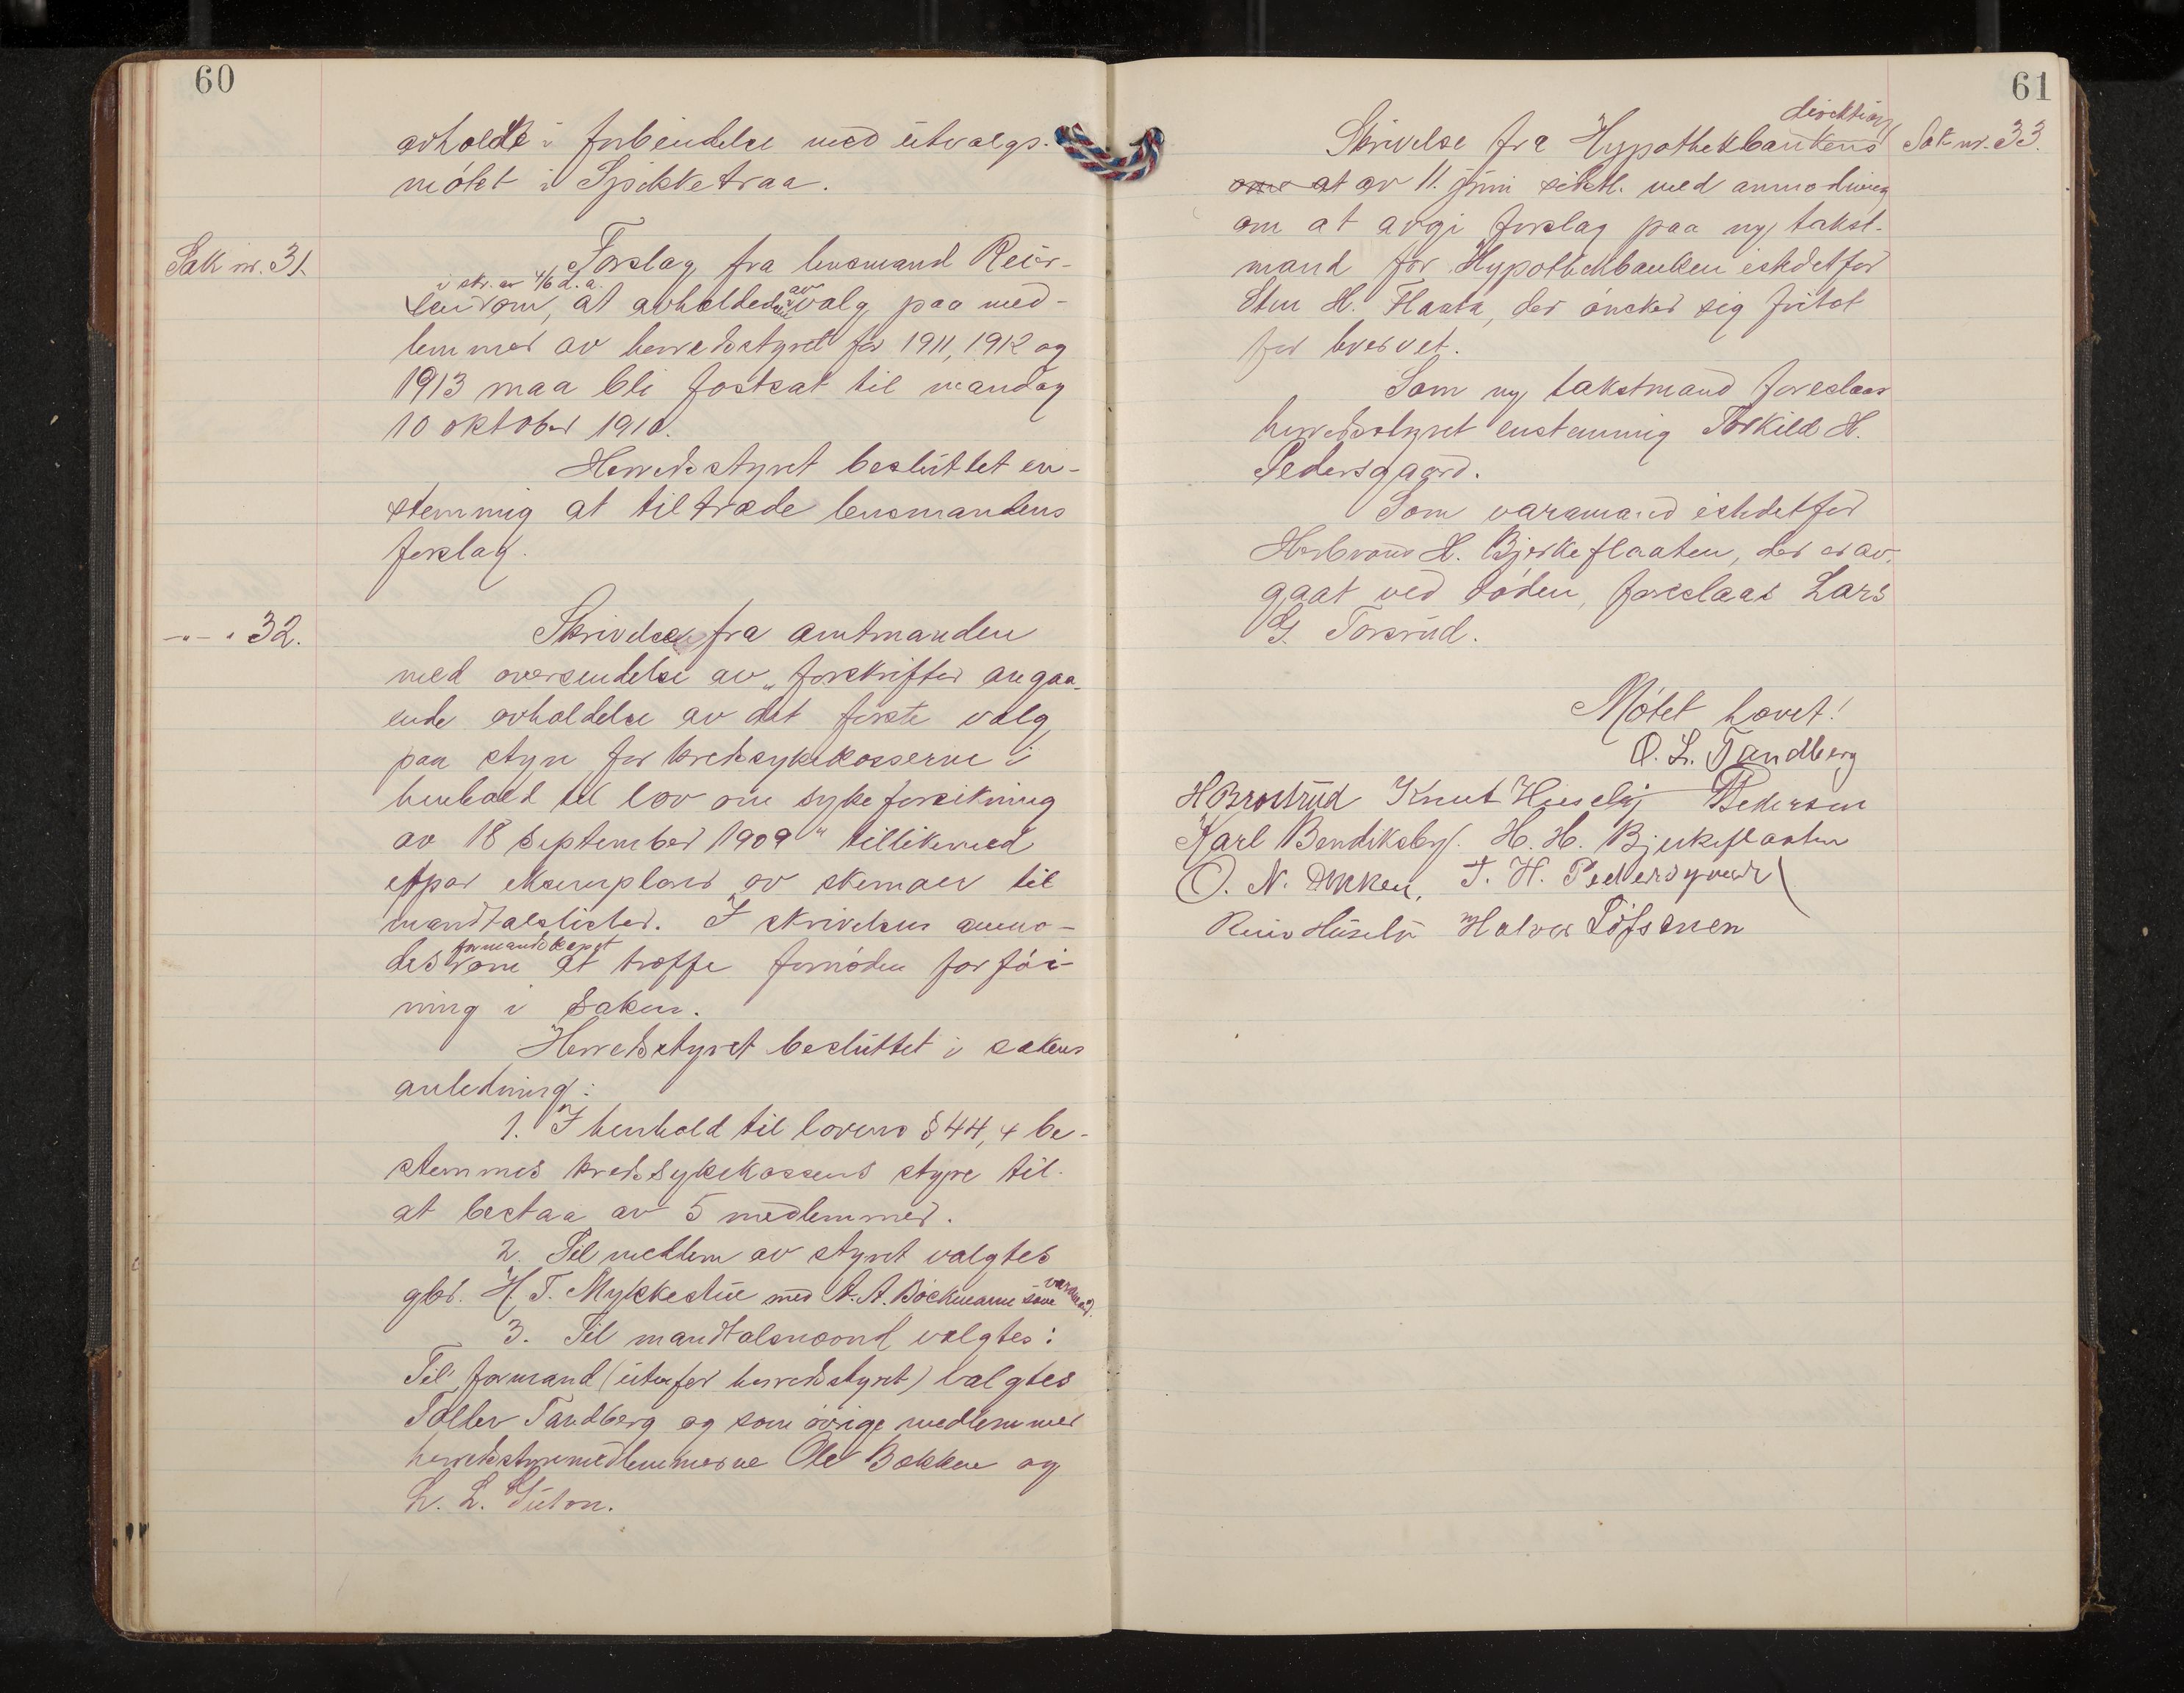 60
avholdt i forbindelse med utvalgs-
møtet i Spikketraa.
Sak nr. 31.
Forslag fra lensmand Reier-
i skr. av 4/6 d. a.
sen om, at avholdelse av valg paa med-
lemmer av herredsstyret for 1911, 1912 og
1913 maa bli fastsat til mandag
10 oktober 1910.
Herredsstyret besluttet en-
stemmig at tiltræde lensmandens
forslag.
-"- " 32.
Skrivelse fra amtmanden
med oversendelse av "forskrifter angaa-
ende avholdelse av det første valg
paa styre for kredssykekasserne i
henhold til lov om sykeforsikring
av 18 september 1909" tillikemed
etpar eksemplarer av skemaer til
mandtalslister. I skrivelsen anmo-
formandskapet
des om at træffe fornøden forføi-
ning i saken.
Herredsstyret besluttet i sakens
anledning:
1. I henhold til lovens § 44, 4 be-
stemmes kredssykekassens styre til
at bestaa av 5 medlemmer.
2. Til medlem av styret valgtes
gbr. H. T. Mykkestue med A. A. Bøckmann som varamand.
3. Til mandtalsnævnd valgtes:
Til formand (utenfor herredsstyret) valgtes
Tollev Tandberg og som øvrige medlemmer
herredsstyremedlemmerne Ole Bakken og
L. L. Guton.
61
direktion
Skrivelse fra Hypothekbankens
Sak nr. 33.
om at av 11. juni sidstl. med anmodning
om at avgi forslag paa ny takst-
mand for Hypothekbanken istedetfor
Sten H. Flaata, der ønsker sig fritat
for hvervet.
Som ny takstmand foreslaar
herredsstyret enstemmig Torkild H.
Pedersgaard.
Som varamand istedetfor
Herbrand H. Bjerkeflaaten, der er av-
gaat ved døden, foreslaaes Lars
G. Torsrud.
Møtet hævet!
O. L. Tandberg
H Brostrud Knut Huselej Pedersen
Karl Bendiksby. H. H. Bjerkeflaaten
O. N. Bakken, T. H. Pedersgaard
Reier Huselej Halvor Løfsænen